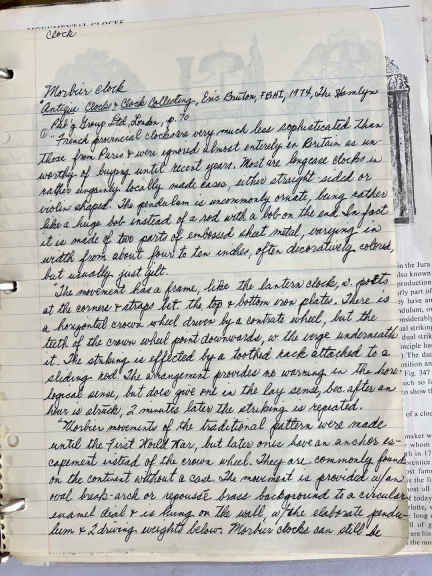 Clock
Morbier Clock
"Antique Clocks & Clock Collecting, Eric Bruton, FBHI, 1974, The Hamlyn
Pub'g Group Ltd, London, p. 70
"French provincial clocks are very much less sophisticated than
those from Paris & were ignored almost entirely in Britain as un-
worthy of buying until recent years. Most are longcase clocks in
rather ungainly locally made cases, either straight sided or
violin shaped. The pendulum is uncommonly ornate, being rather
like a huge bob instead of a rod with a bob on the end. In fact
it is made of two parts of embossed sheet metal, varying in
width from about four to ten inches, often decoratively colored,
but usually just gilt.
"The movement has a frame, like the lantern clock, w. posts
at the corners & straps bet. the top & bottom iron plates. There is
a horizontal crown wheel driven by a contrate wheel, but the
teeth of the crown wheel point downwards, w. the verge underneath
it. The striking is effected by a toothed rack attached to a
sliding rod. The arrangement provides no warning in the horo-
logical sense, but does give one in the lay sense, bec. after an
hour is struck, 2 minutes later the striking is repeated.
"Morbier movements of the traditional pattern were made
until the First World War, but later ones have an anchor es-
capement instead of the crown wheel. They are commonly found
on the continent without a case. The movement is provided w/an
oval break-arch or repoussé brass background to a circular
enamel dial & is hung on the wall, w/the elaborate pendu-
lum & 2 driving weights below. Morbier clocks can still be